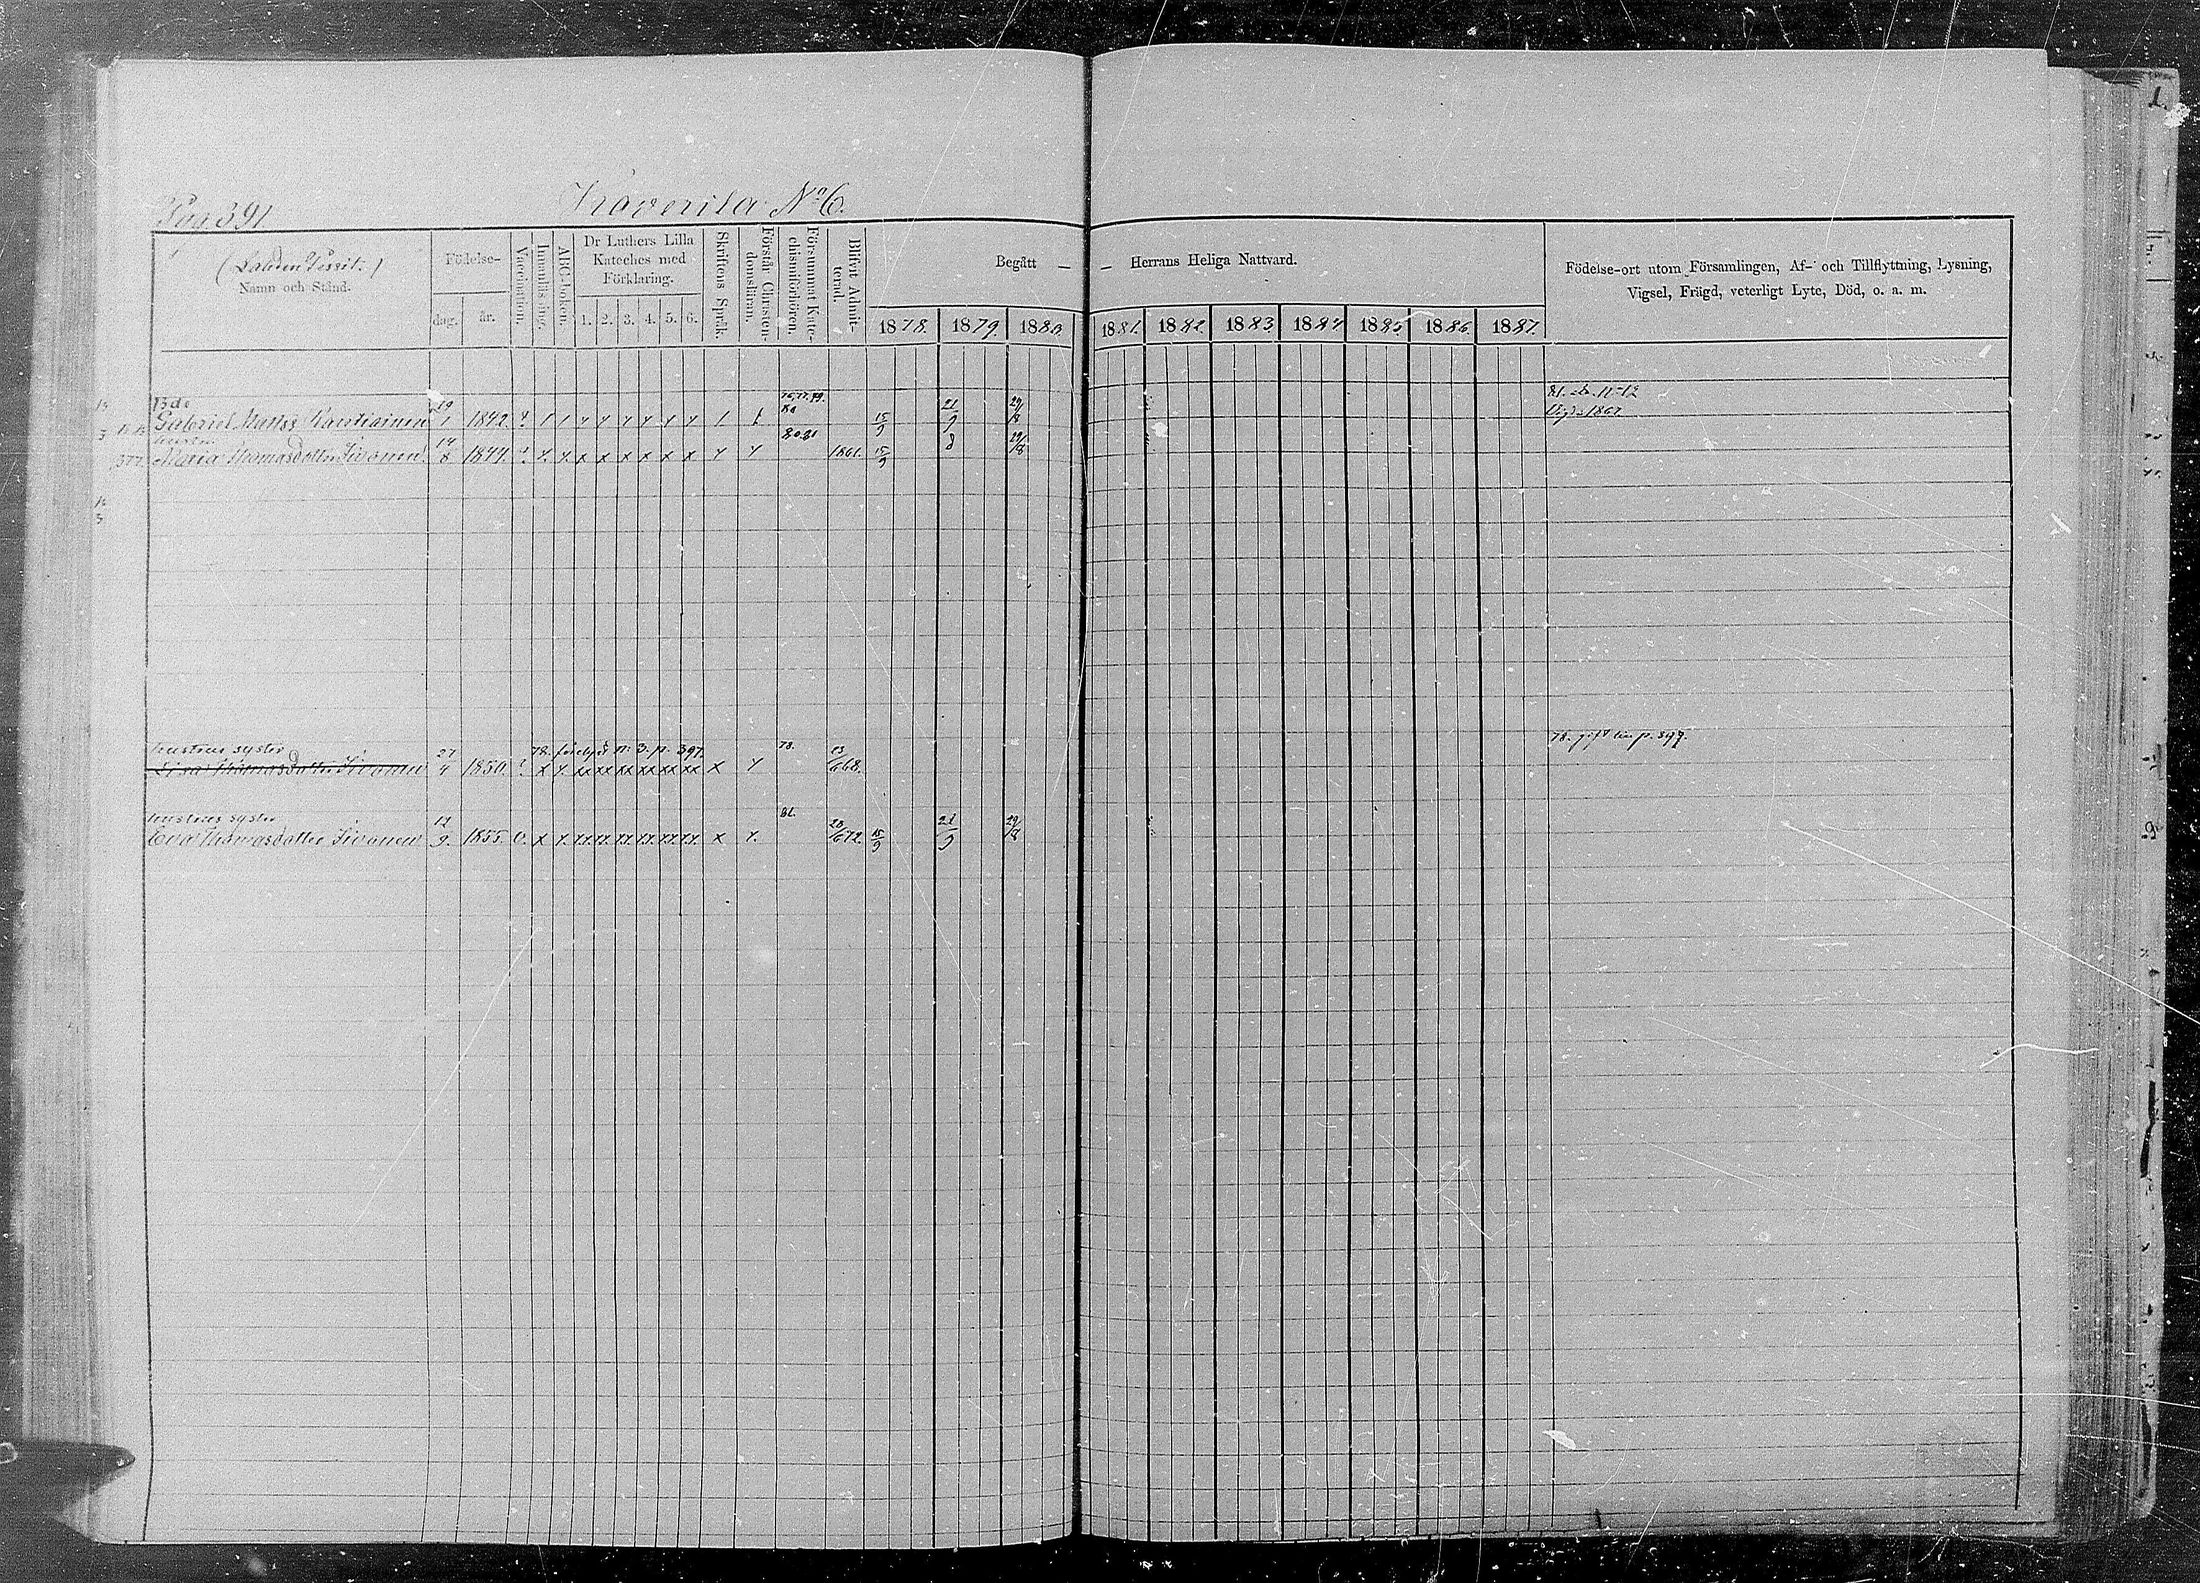 Pag 391
Koverila No 6.
1.
Namn och Stånd.
Födelse-
dag.
år.
Vaccination.
Innanläsning.
ABC-boken.
Dr Luthers Lilla
Kateches med
Förklaring.
1. 2. 3. 4. 5. 6.
Skriftens Språk.
Förstår Christen-
domsläran.
Försummat Kate-
chismiförhören.
Blifvit Admit-
terad.
Begått — — Herrans Heliga Nattvard.
1878. 1879. 1880 1881. 1882. 1883 1884 1885 1886. 1887.
Födelse-ort utom Församlingen, Af- och Tillflyttning, Lysning,
Vigsel, Frägd, veterligt Lyte, Död, o. a. m.
Bde 19 76.77.79. 21 29
Gabriel Matts Kautiainen 1 1842. 80 15/9 9 8 Vigd 1867
hustru 14 80.81 29
Maria Thomasdotter Sivonen 8 1844. x x x x x x 1861. 15/9 8 8
hustrus syster 27 78. n: 3. p. 397. 78. 13 78. gift p. 397.
Lisa Thomasdotter Sivonen 4 1850. x x. xx xx xx xx xx xx x /668.
hustrus syster 12 81. 28 21 29
Eva Thomasdotter Sivonen 9. 1855. v. x x. xx. xx. xx. xx. xx. xx. x x. /672. 15/9 9 8